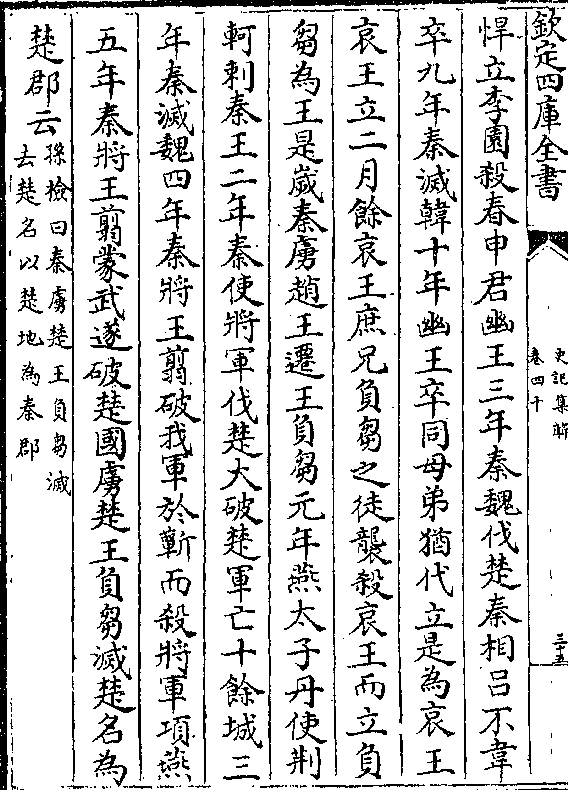 欽定四庫全書
史記集解
卷四十
三十五
悍立李園殺春申君幽王三年秦魏伐楚秦相呂不韋
卒九年秦滅韓十年幽王卒同母弟猶代立是為哀王
哀王立二月餘哀王庶兄負芻之徒襲殺哀王而立負
芻為王是嵗秦虜趙王遷王負芻元年燕太子丹使荆
軻刺秦王二年秦使將軍伐楚大破楚軍亡十餘城三
年秦滅魏四年秦將王翦破我軍於蘄而殺將軍項燕
五年秦將王翦蒙武遂破楚國虜楚王負芻滅楚名為
楚郡云
孫檢曰秦虜楚王負芻滅
去楚名以楚地為秦郡